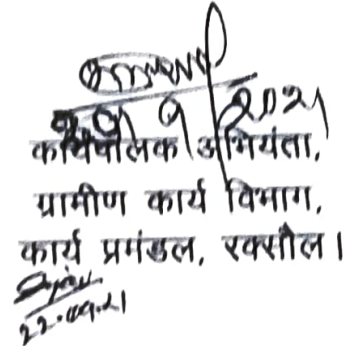 2021
कार्यपालक अभियंता,
ग्रामीण कार्य विभाग,
कार्य प्रमंडल, रक्सौल।
22.09.21